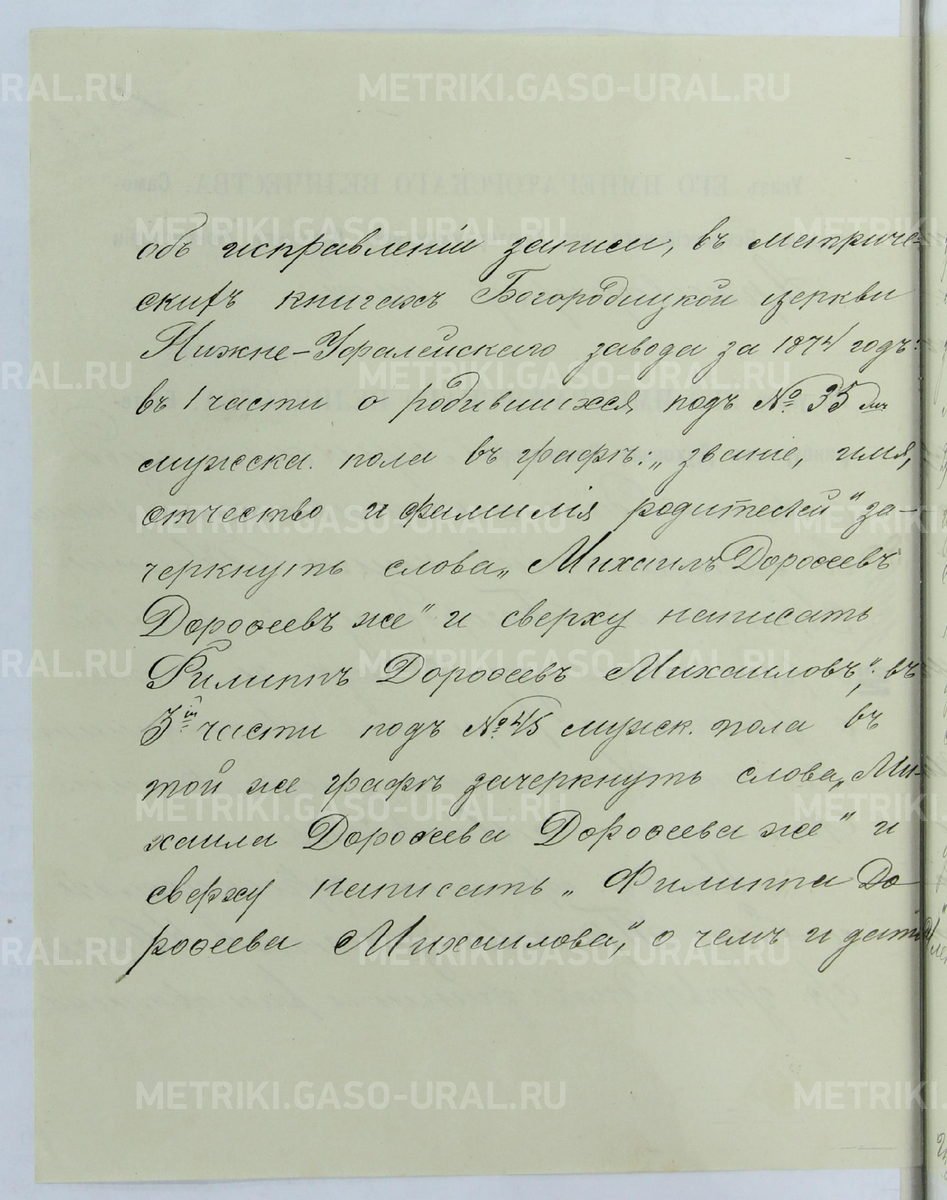 объ исправленіи записи, въ метриче-
скихъ книгахъ Богородицкой церкви
Нижне-Уфалейскаго завода за 1874 годъ:
въ 1 части о родившихся подъ № 35 для
мужска. пола въ графѣ: „званіе, имя,
отчество и фамилія родителей" за-
черкнуть слова „Михаилъ Дороѳеевъ
Дороѳеевъ же" и сверху написать
Филиппъ Дороѳеевъ Михаиловъ"; въ
3й части подъ № 45 мужск. пола въ
той же графѣ зачеркнуть слова „Ми-
хаила Дороѳеева Дороѳеева же" и
сверху написать „Филиппа До-
роѳеева Михаилова", о чемъ и дать
METRIKI.GASO-URAL.RU